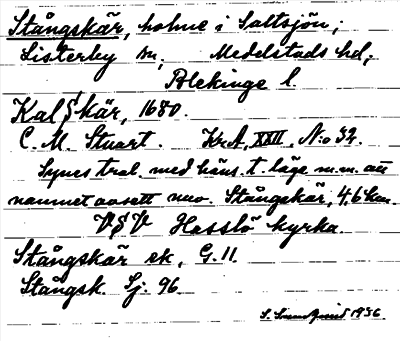 Stångskär, holme i Saltsjön;
Listerby sn, Medelstads hd,
Blekinge l.
Kalfskär, 1680.
C. M. Stuart. KrA, XXII, N:o 32.
Synes tral. med häns. t. läge m.m. att
namnet avsett nuv. Stångskär, 4,6 km.
VSV Hasslö kyrka.
Stångskär ek, G. 11.
Stångsk. Sj. 96.
S. 1936